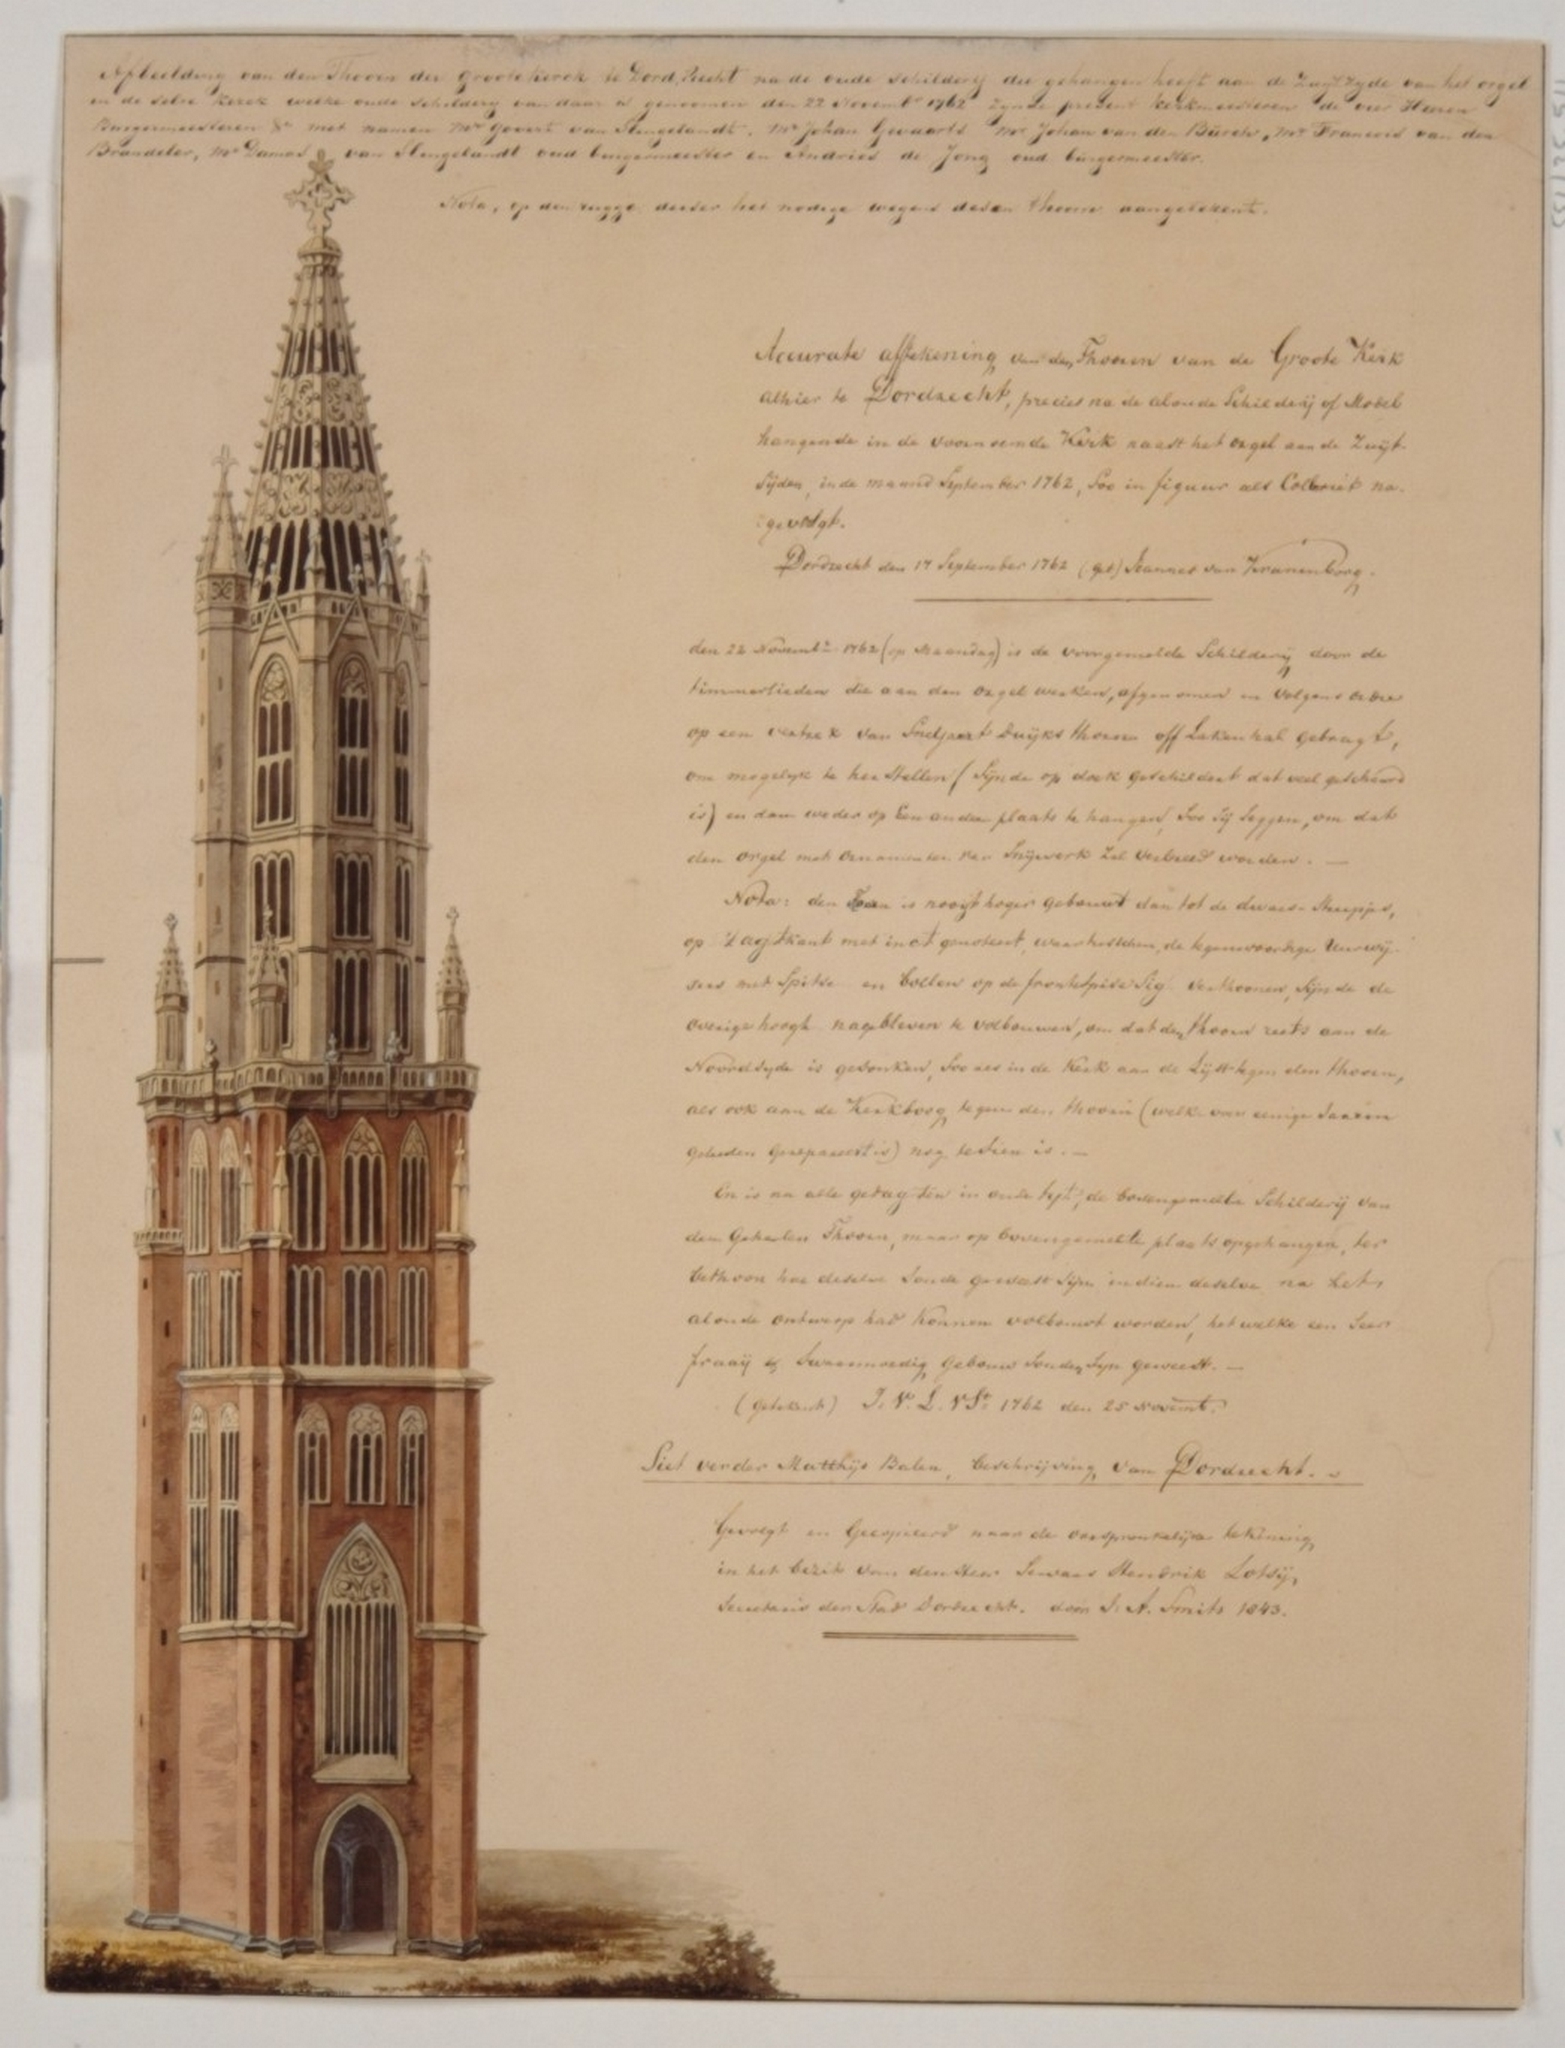 Afbeelding van den Thooren der Groote kerck te Dord,recht na de oude schilderij die gehangen heeft aan de Zuyt Zyde van het orgel
in de selve kerck welke oude schildery van daar is genoomen den 22 Novembr 1762 Zynde present kerkmeesteren de vier Heeren
Burgermeesteren &c met namen Mr Govert van Slingelandt, Mr Johan Gevaarts Mr Johan van den Burch, Mr Francois van den
Brandeler, Mr Damas van Slingelandt oud burgermeester en Andries de Jong oud burgermeester.
Nota, op den rugge deeser het nodige wegens desen thoorn aangetekent.
Accurate afftekening van den Thooren van de Groote Kerk
alhier te Dordrecht, precies na de aloude Schilderij of Model
hangende in de voornoemde Kerk naast het orgel aan de Zuijt
Sijden, in de maand September 1762, Soo in figuur als Coloriet na-
gevolgt.
Dordrecht den 17 September 1762 (get) Joannes van Kranenborg.
den 22 Novembr 1762 (op Maandag) is de voorgemelde Schilderij door de
timmerlieden die aan den orgel werken, afgenomen en volgens ordre
op een vertrek van Sneljaert Duijks thooren off Lakenhal gebragt,
om mogelijk te herstellen (Sijnde op doek geschildert dat veel gescheurd
is) en dan weder op Een ander plaats te hangen, Soo Sij Seggen, om dat
den orgel met ornamenten van Snijwerk Zal verbreed worden. —
Nota: den Toren is nooijt hooger gebouwt dan tot de dwars-
op 't agtkant met in
sers met Spitse en bollen op de frontespise Sig verthoonen, Sijnde de
overige hoogte nagebleven te volbouwen, om dat den thooren reets aan de
Noordsyde is gesonken, Soo als in de Kerk aan de Lijst tegen den thooren,
als ook aan de Kerkboog tegen den thooren (welke voor eenige Jaaren
geleeden gerepareert is) nog te sien is. —
En is na alle gedagten in oude tijt, de bovengemelte Schilderij van
den Geheelen Thooren, maar op bovengemelte plaats opgehangen, ter
bethoon hoe deselve Soude geweest Sijn indien deselve na het
aloude ontwerp had konnen volbouwt worden, het welke een Seer
fraaij & Swaarmoedig gebouw Soude Sijn geweest. —
(getekent) J. V. L. V St 1762 den 25 Novembr.
Siet verder Matthijs Balen, beschrijving van Dordrecht.
Gevolgt en Gecopieerd naar de oorspronkelijke tekening
in het bezit van den Heer Servaas Hendrik Lotsij,
Secretaris der Stad Dordrecht. door J. A. Smits 1843.